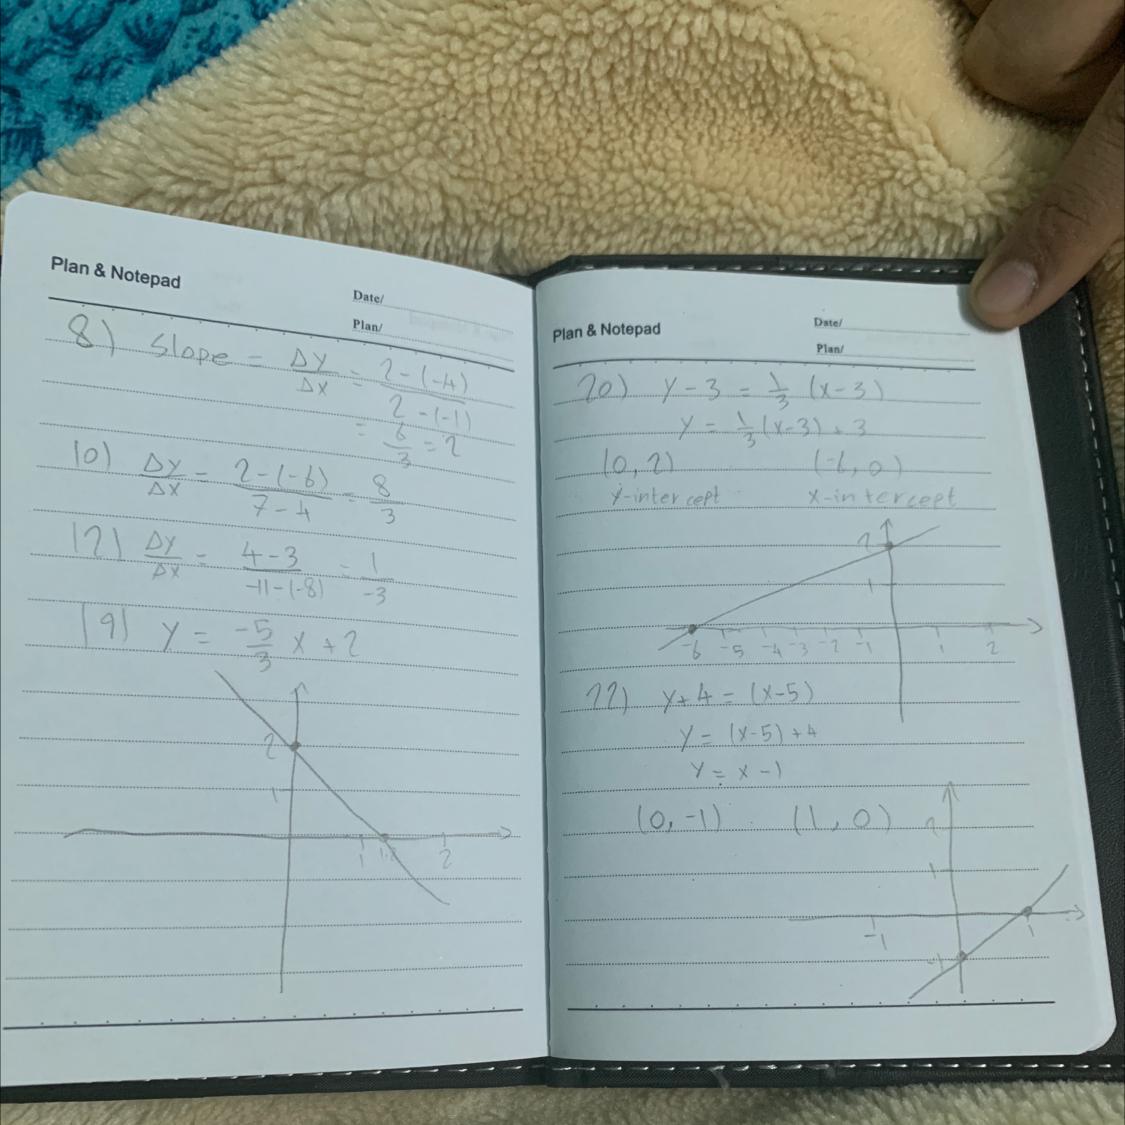 Plan & Notepad
Date/
Plan/
8) Slope = ΔY/ΔX = 2-(-4)/2-(-1)
= 6/3 = 2
10) ΔY/ΔX = 2-(-6)/7-4 = 8/3
12) ΔY/ΔX = 4-3/-11-(-8) = 1/-3
19) Y = -5/3 X + 2
2
1
1 1.2 2
Plan & Notepad
Date/
Plan/
20) Y - 3 = 1/3 (X-3)
Y = 1/3 (X-3) + 3
(0, 2) (-6, 0)
Y-intercept X-intercept
2
1
-6 -5 -4 -3 -2 -1 1 2
22) Y+4 = (X-5)
Y = (X-5) + 4
Y = X - 1
(0, -1) (1, 0)
2
1
-1 1
-1